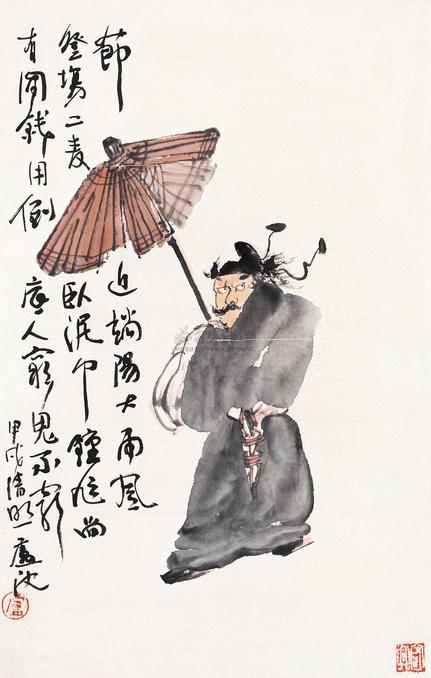 節近端陽大雨風
登場二麦臥泥中鍾馗尚
有閒錢用倒底人窮鬼不窮
甲戌清明盧沈
盧